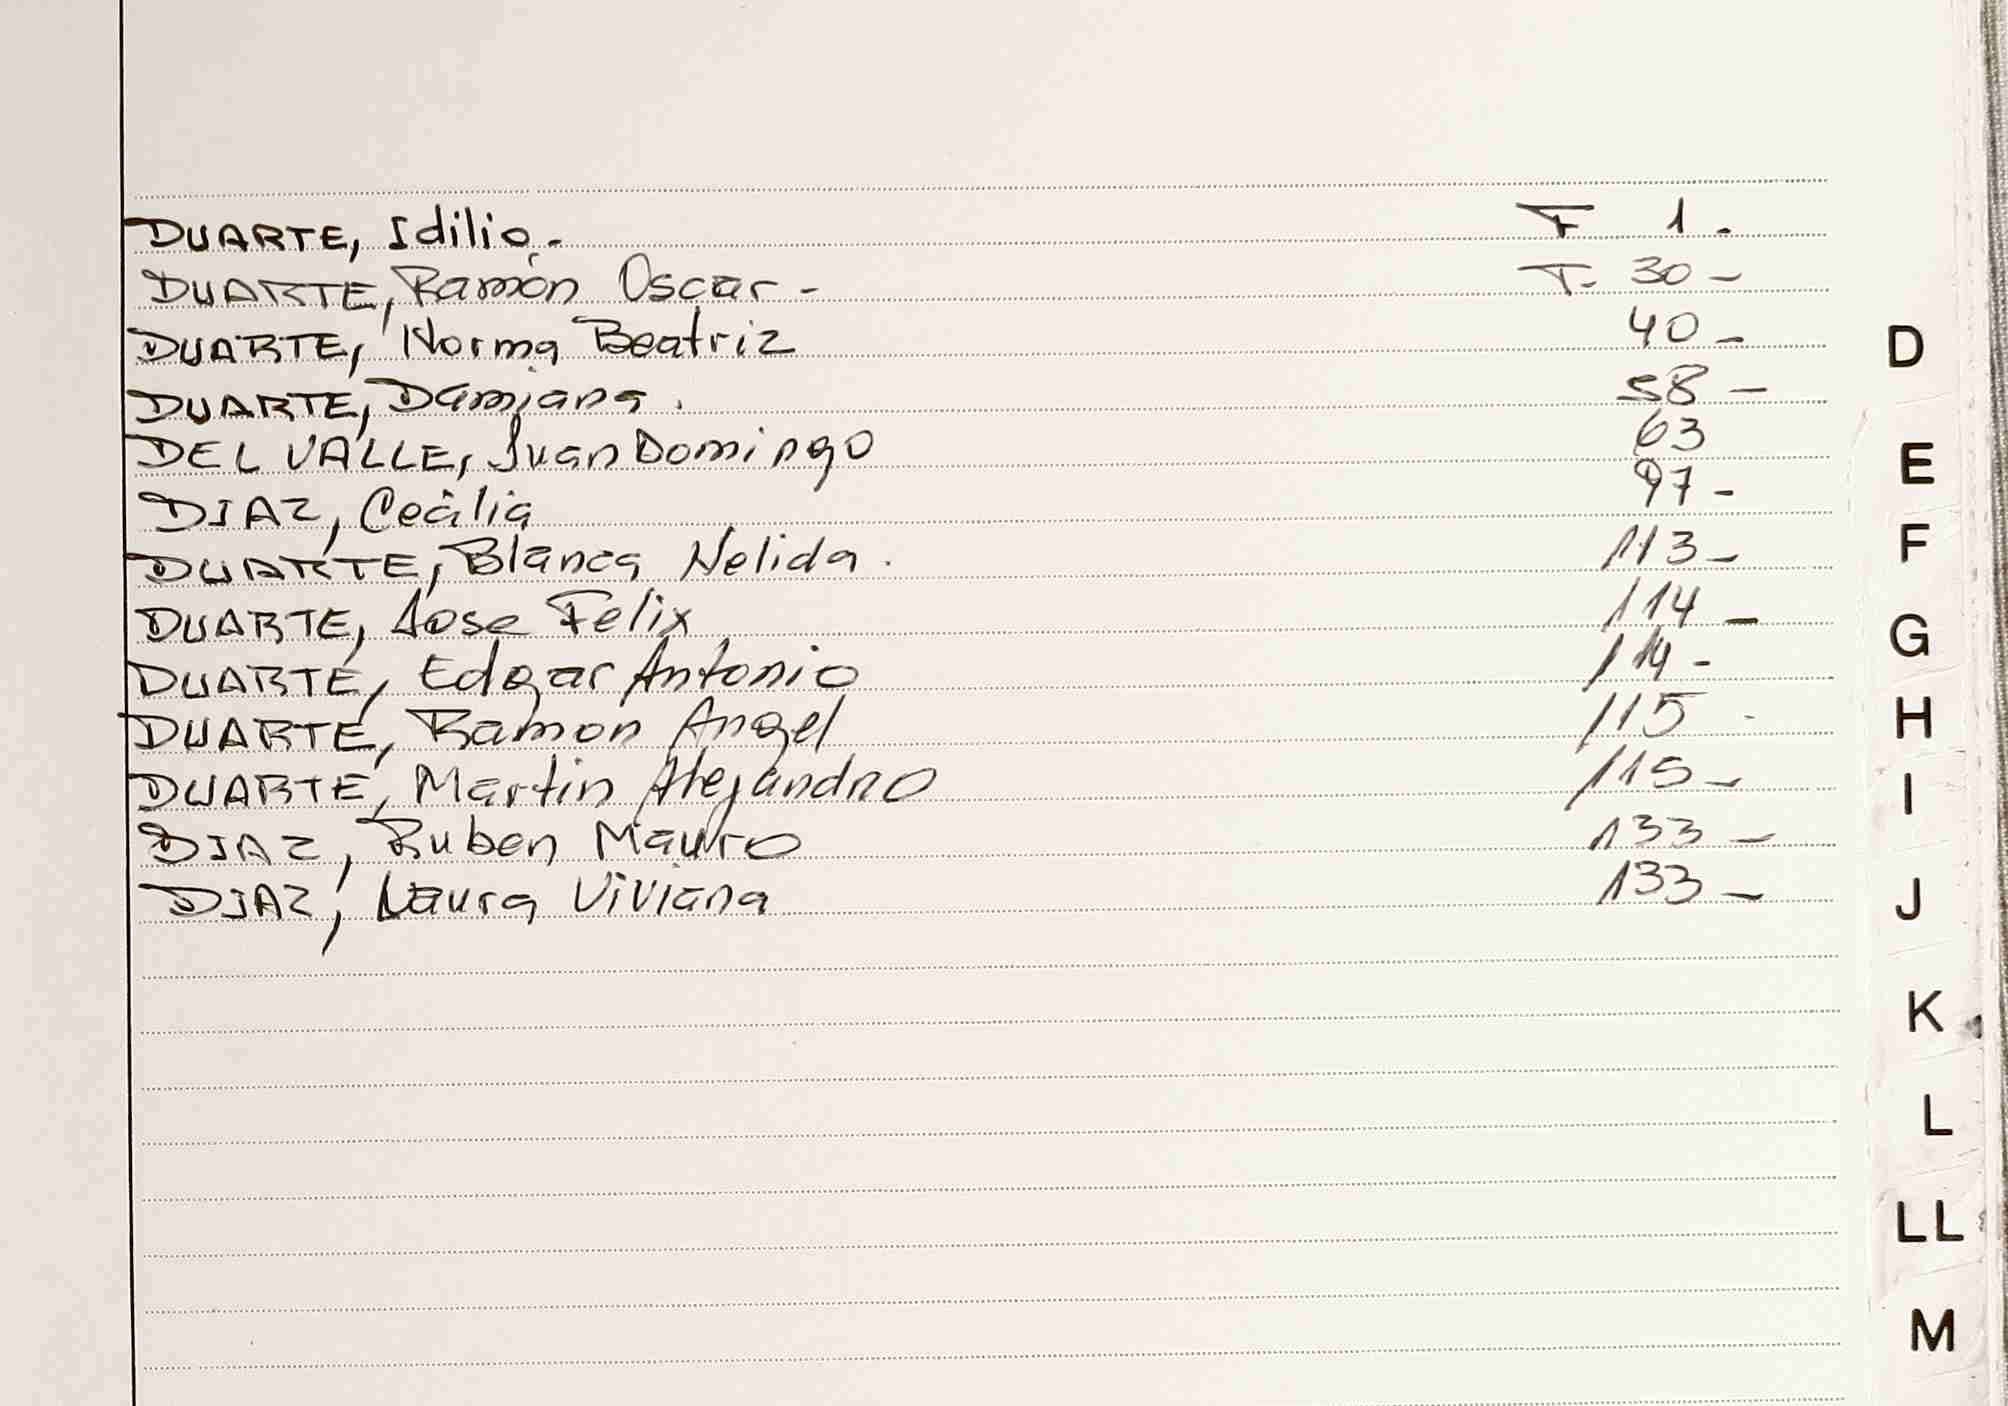 DUARTE, Idilio.- F 1.
DUARTE, Ramón Oscar - F. 30 -
DUARTE, Norma Beatriz 40 -
DUARTE, Damiana. 58 -
DEL VALLE, Juan Domingo 63
DIAZ, Cecilia 97 -
DUARTE, Blanca Nelida. 113 -
DUARTE, Jose Felix 114 -
DUARTE, Edgar Antonio 114 -
DUARTE, Ramon Angel 115 -
DUARTE, Martin Alejandro 115 -
DIAZ, Ruben Mauro 133 -
DIAZ, Laura Viviana 133 -
D
E
F
G
H
I
J
K
L
LL
M